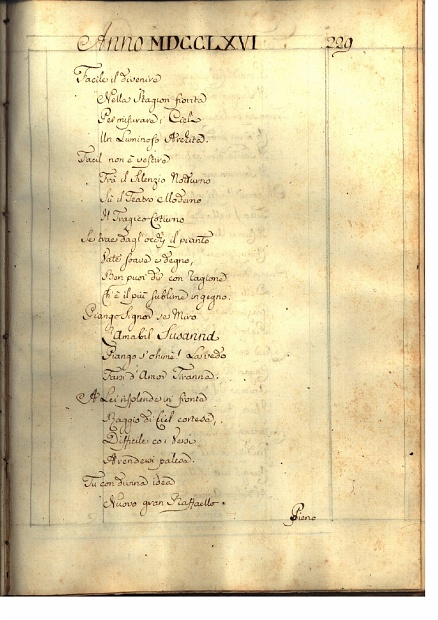 Anno MDCCLXVI 229
Facile il divenire
Nella Stagion fiorita
Per misurare i Cieli
Un Luminoso
Facil non è vestire
Frà il Silenzio Notturno
Sù il Teatro Moderno
Il Tragico Coturno
Se trae dagl' occhj il pianto
Vate soave e degno,
Ben puoi dir con ragione
Ch'è il più sublime ingegno.
Piango Signor se Miro
L'Amabil Susanna
Piango s'ohime! La vedo
Farsi d'Amor Tiranna.
A Lei risplende in fronte
Raggio di Ciel cortese,
Difficile co i Versi
A rendersi palese.
Tu con divina idea
Nuovo gran Raffaello.
Pieno